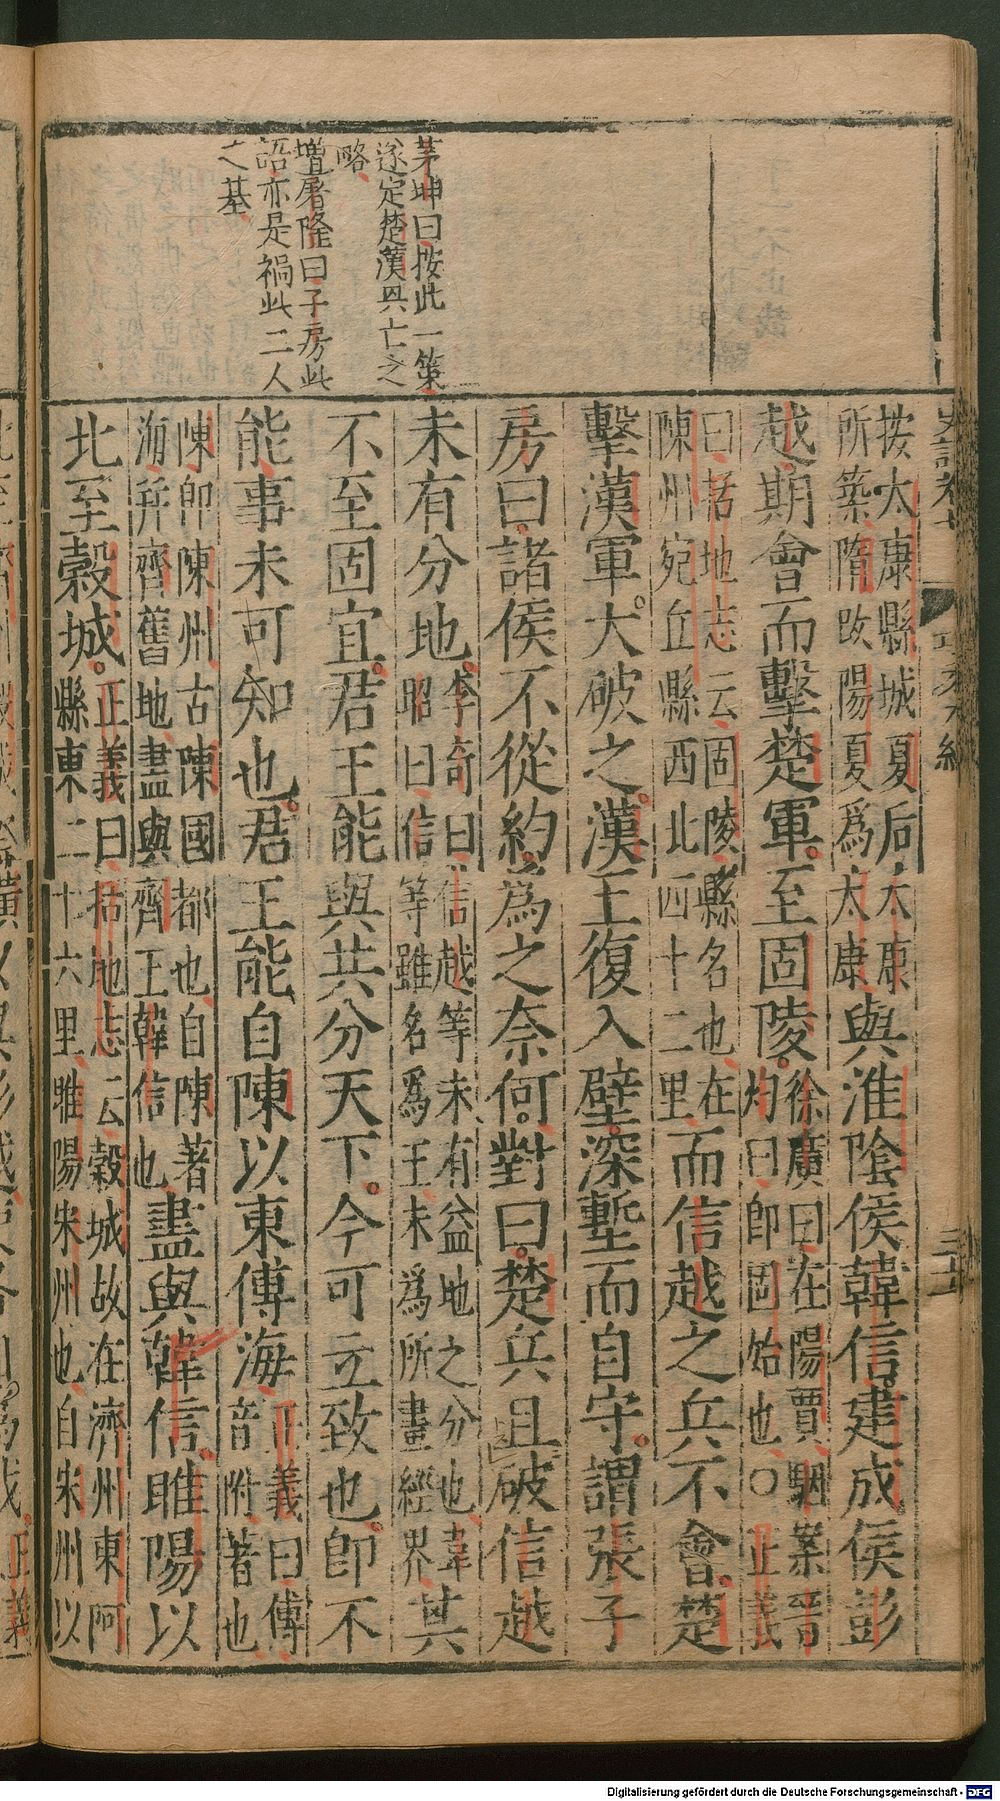 茅坤曰按此一策
遂定楚漢興亡之
略
增屠隆曰子房此
語亦是禍此二人
之基
按太康縣城夏后太康
所築隋改陽夏爲太康
與淮陰侯韓信建成侯彭
越期會而擊楚軍至固陵
徐廣曰在陽夏駰案晉
灼曰卽固始也○正義
曰括地志云固陵縣名也在
陳州宛丘縣西北四十二里
而信越之兵不會楚
擊漢軍大破之漢王復入壁深塹而自守謂張子
房曰諸侯不從約爲之奈何對曰楚兵且破信越
未有分地
李奇曰信越等未有益地之分也韋
昭曰信等雖名爲王未爲所畫經界
其
不至固宜君王能與共分天下今可立致也卽不
能事未可知也君王能自陳以東傅海
正義曰傅
音附著也
陳卽陳州古陳國都也自陳著
海幷齊舊地盡與齊王韓信也
盡與韓信睢陽以
北至穀城
正義曰括地志云穀城故在濟州東阿
縣東二十六里睢陽宋州也自宋州以
Digitalisierung gefördert durch die Deutsche Forschungsgemeinschaft - DFG